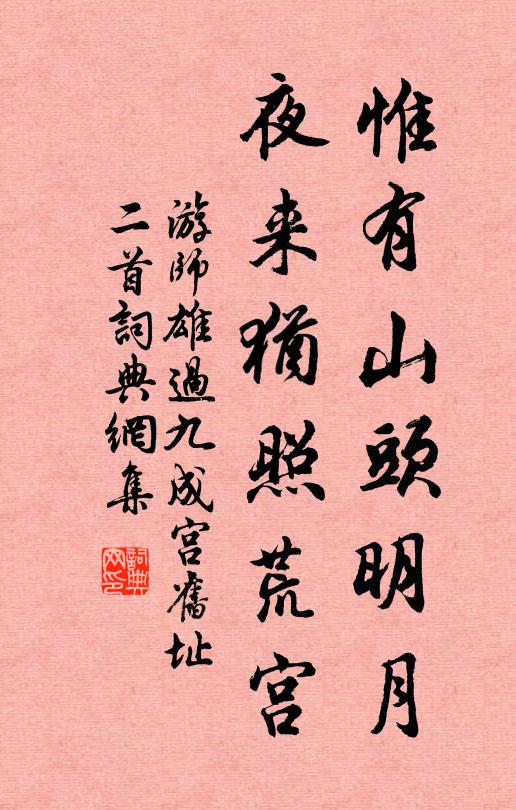 惟有山頭明月
夜来猶照荒宫
游師雄過九成宫舊址
二首詞典網集
詞典网印